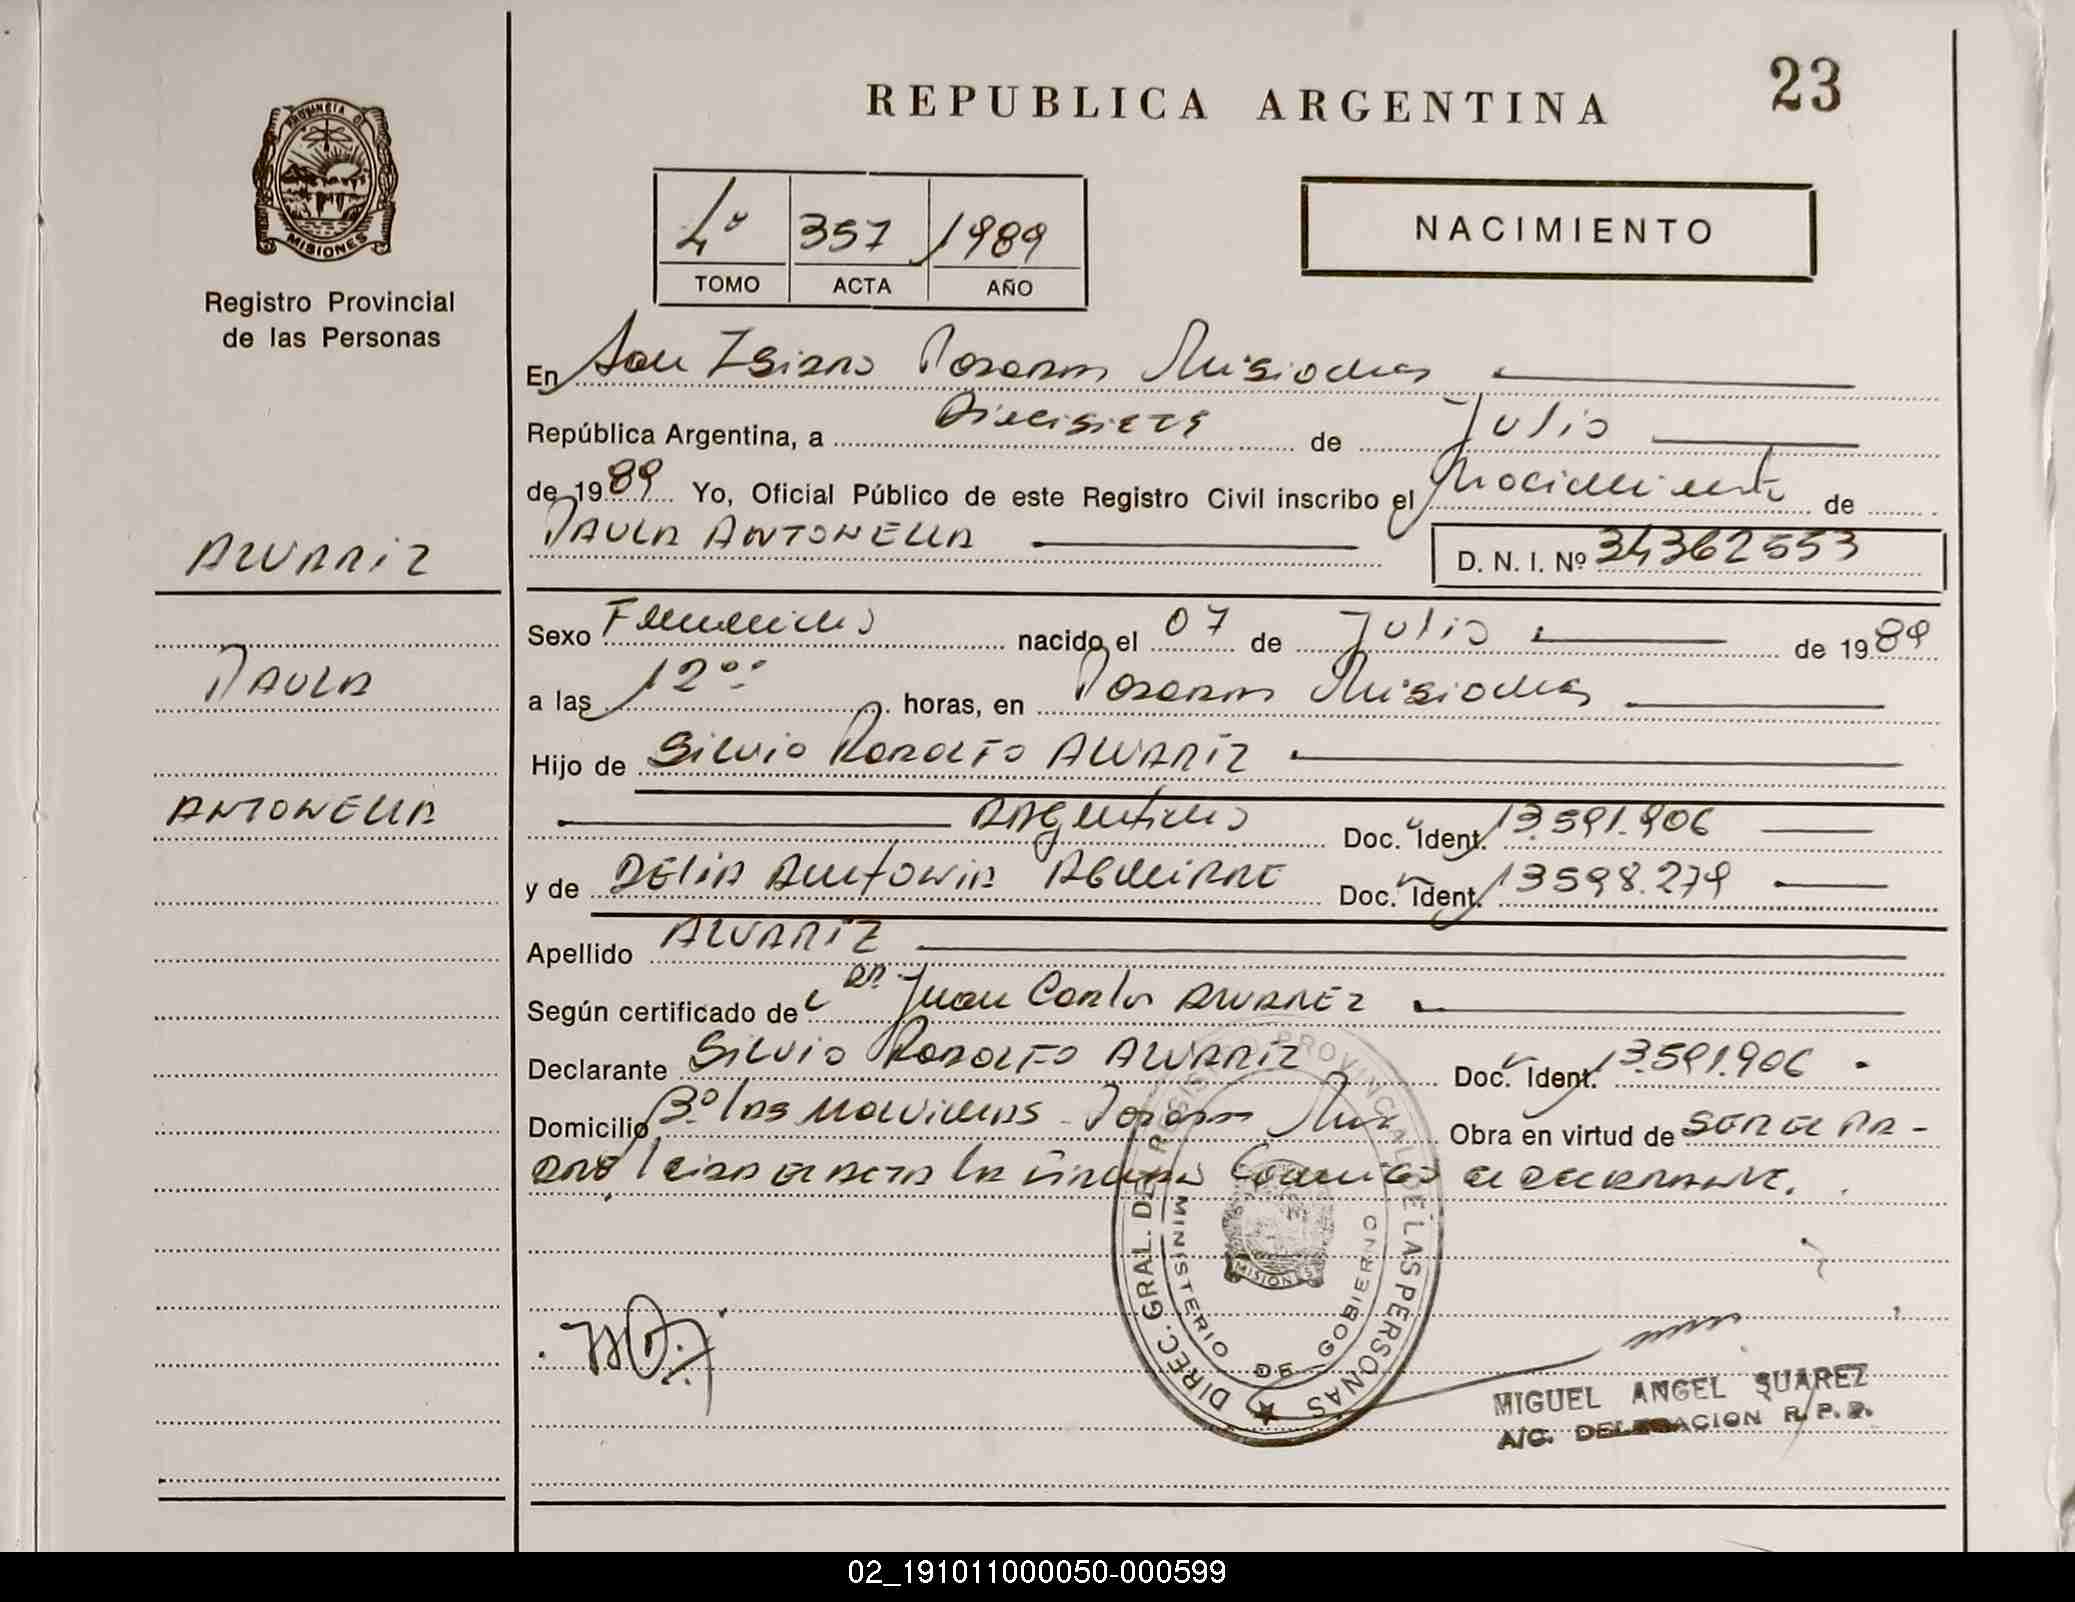 23
REPUBLICA ARGENTINA
PROVINCIA DE
MISIONES
Registro Provincial
de las Personas
4º 357 1989
TOMO ACTA AÑO
NACIMIENTO
En San Isidro Posadas Misiones
República Argentina, a Diecisiete de Julio
de 1989 Yo, Oficial Público de este Registro Civil inscribo el Nacimiento de
PAULA ANTONELLA D. N. I. Nº 34362553
ALVARIZ
PAULA
ANTONELLA
Sexo Femenino nacido el 07 de Julio de 1989
a las 12ºº horas, en Posadas Misiones
Hijo de Silvio Rodolfo ALVARIZ
Argentino Doc. Ident. 13.591.906
y de DELIA Antonia Doc. Ident. 13598.279
Apellido ALVARIZ
Según certificado de Dr. Juan Carlos ALVAREZ
Declarante Silvio Rodolfo ALVARIZ Doc. Ident. 13.591.906
Domicilio Bº las Malvinas - Posadas Mnes Obra en virtud de SER EL PA-
DRE, leida el acta la firma conmigo el declarante.
DIREC. GRAL. DEL REGISTRO PROVINCIAL DE LAS PERSONAS
MINISTERIO DE GOBIERNO
MISIONES
MIGUEL ANGEL SUAREZ
A/C. DELEGACION R. P. P.
02_191011000050-000599